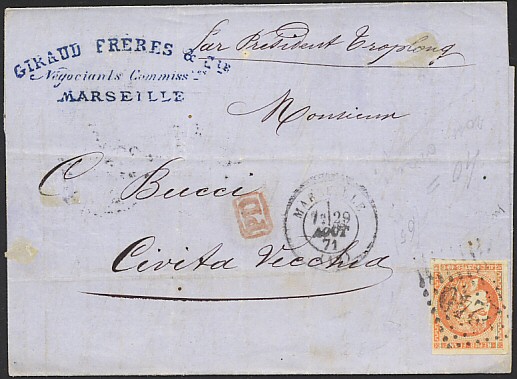 GIRAUD FRÈRES & CIE
Négociants Commiss
MARSEILLE
Par Président Troplong
Monsieur
C. Bucci
PD
MARSEILLE
29
AOUT
71
Civita Vecchia